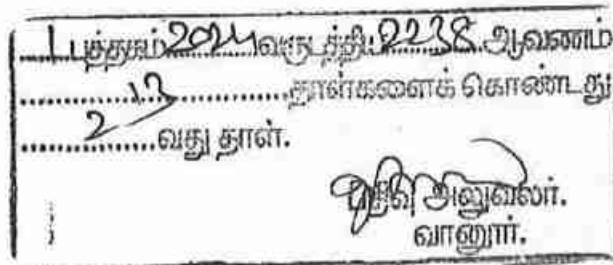 1 புத்தகம் 2024 வருடத்திய 2238 ஆவணம்
13 தாள்களைக் கொண்டது
2 வது தாள்.
பதிவு அலுவலர்.
வானூர்.